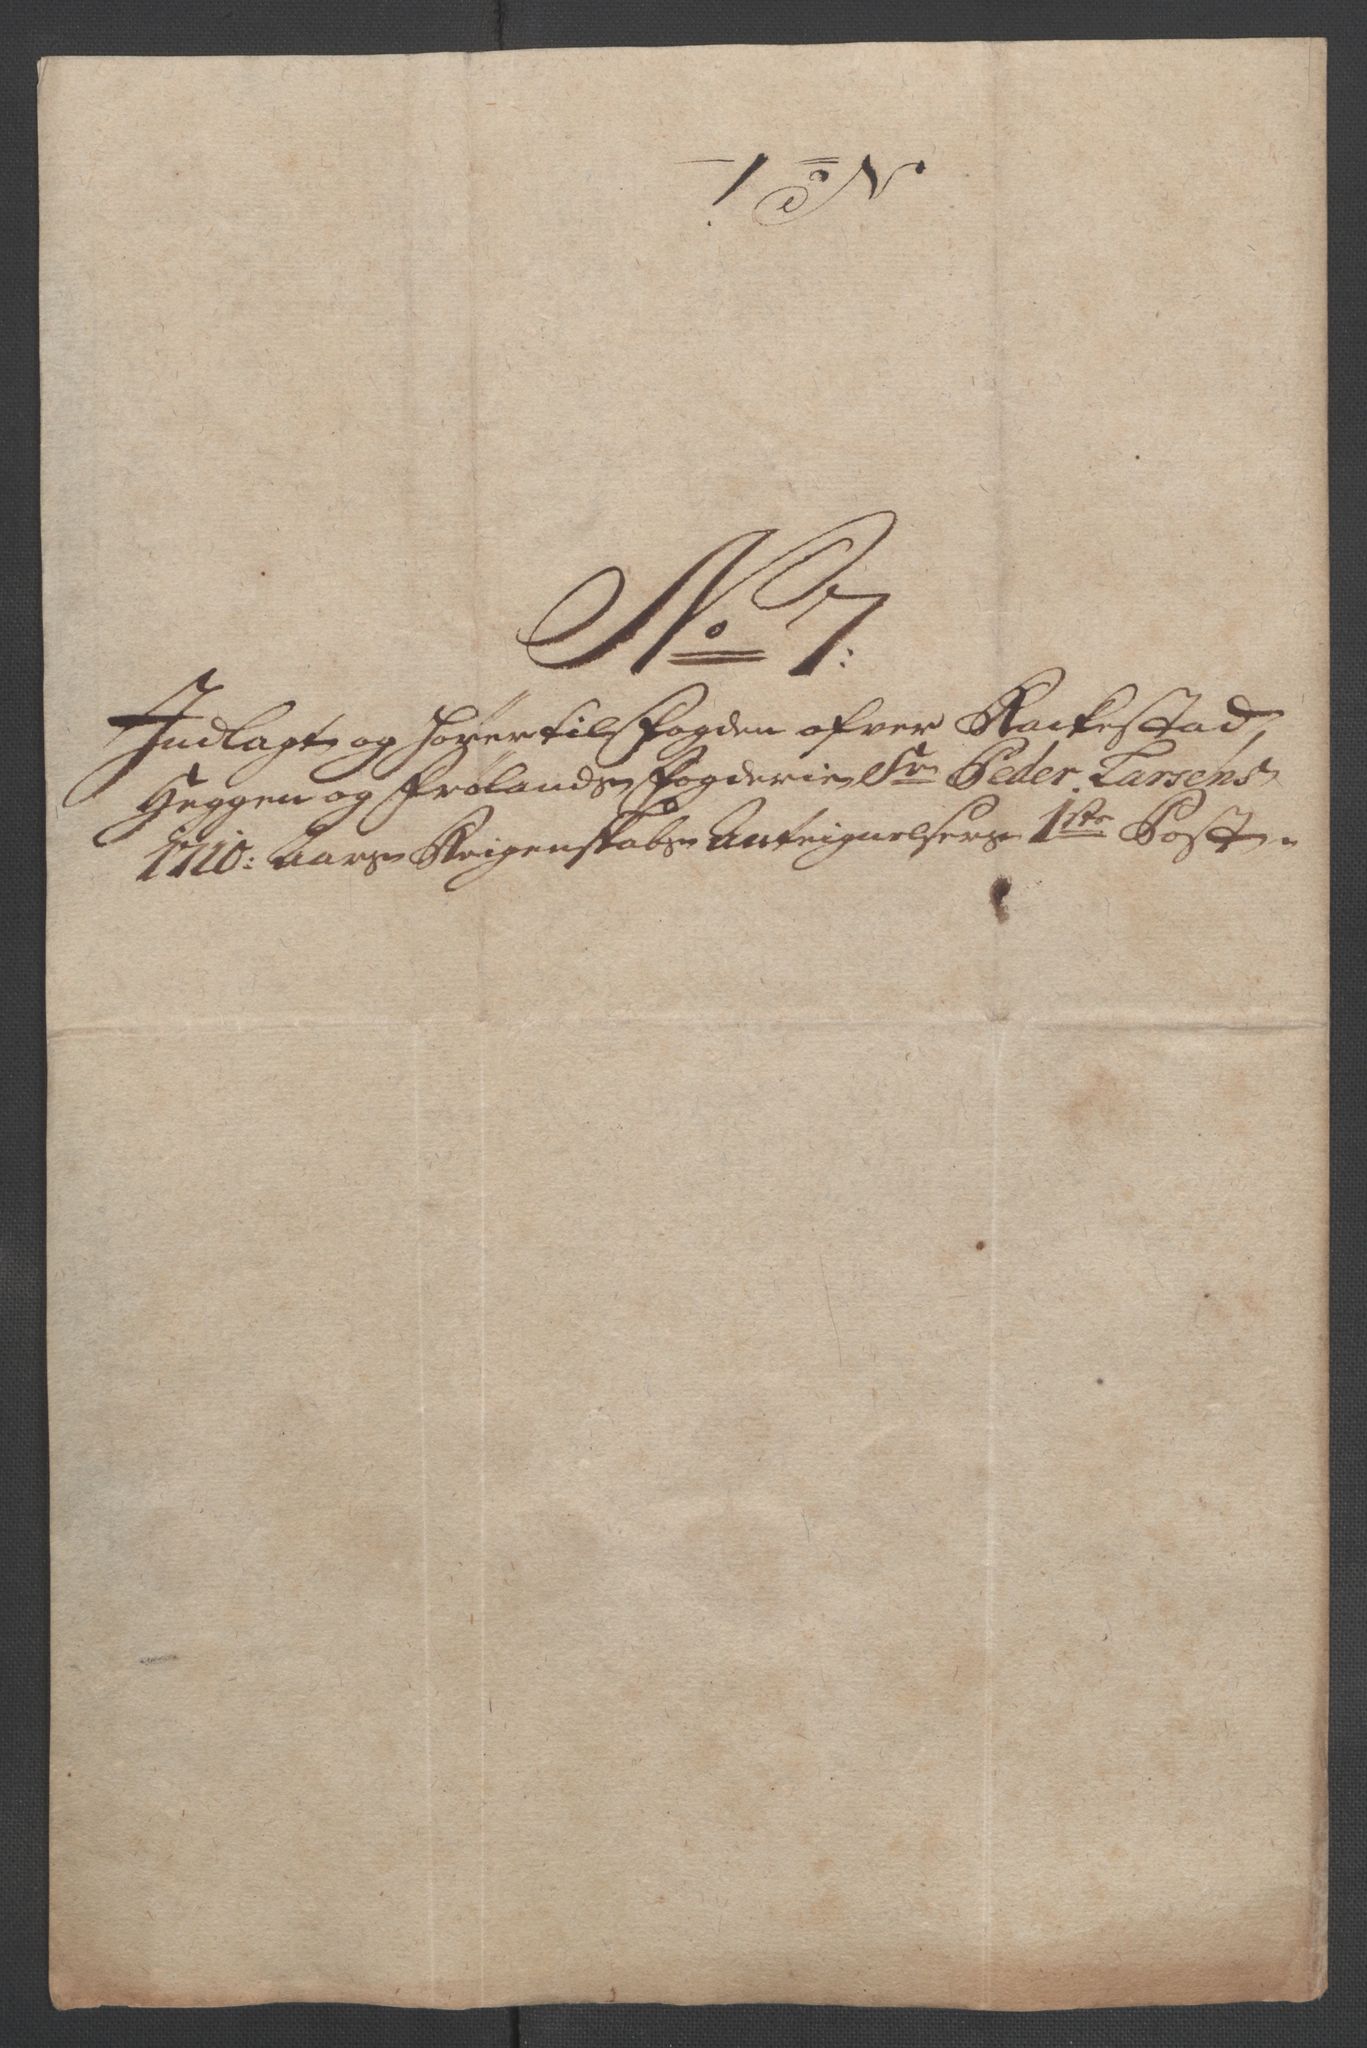 No 1
No 7:
Indlagt og hører til Fogden ofver Rackestad,
Heggen og Frølands Fogderie Sr Peder Larsens
1710: Aars Reigenskabs Antegnelsers 1ste Post